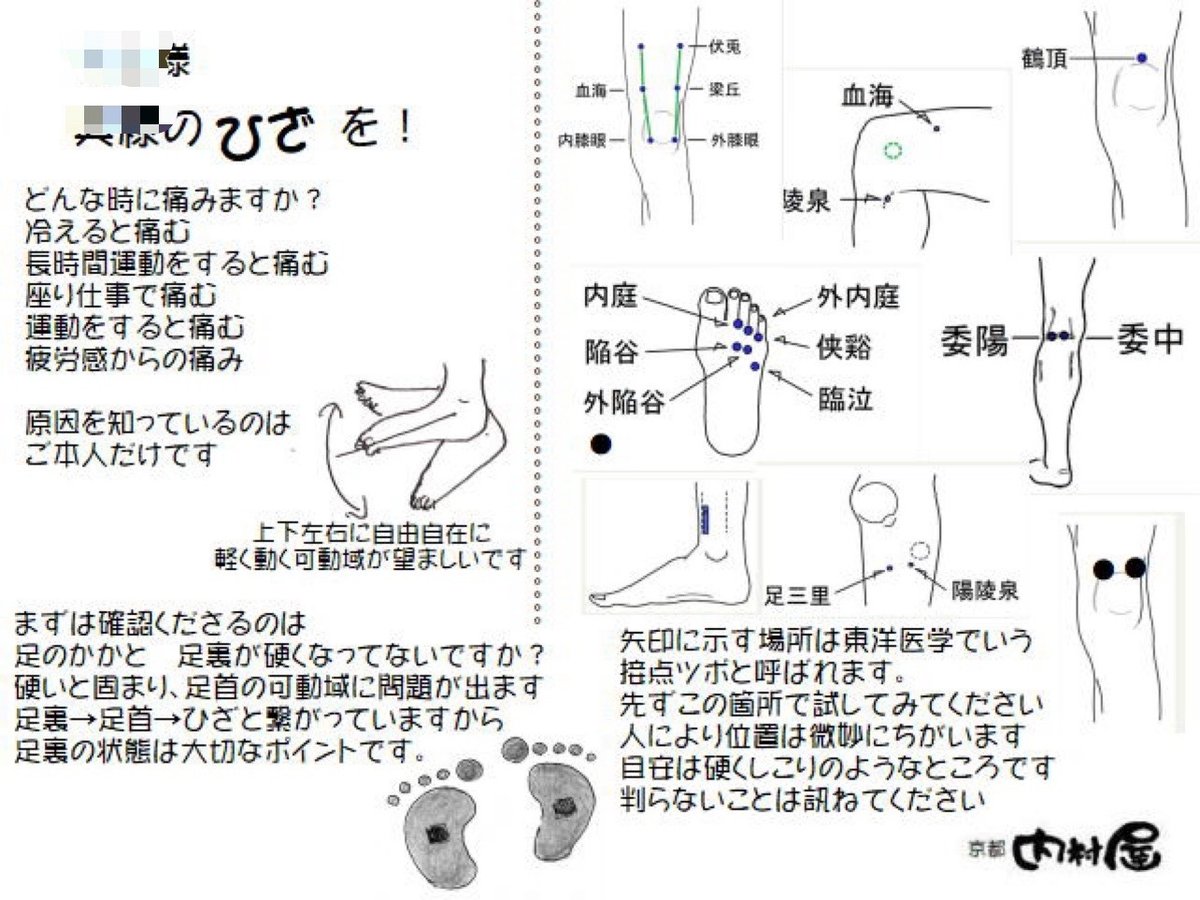 様
様のひざを！
どんな時に痛みますか？
冷えると痛む
長時間運動をすると痛む
座り仕事で痛む
運動をすると痛む
疲労感からの痛み
原因を知っているのは
ご本人だけです
上下左右に自由自在に
軽く動く可動域が望ましいです
まずは確認くださるのは
足のかかと　足裏が硬くなってないですか？
硬いと固まり、足首の可動域に問題が出ます
足裏→足首→ひざと繋がっていますから
足裏の状態は大切なポイントです。
伏兎
血海
梁丘
内膝眼
外膝眼
血海
陵泉
鶴頂
内庭
外内庭
陥谷
侠谿
外陥谷
臨泣
委陽
委中
足三里
陽陵泉
矢印に示す場所は東洋医学でいう
接点ツボと呼ばれます。
先ずこの箇所で試してみてください
人により位置は微妙にちがいます
目安は硬くしこりのようなところです
判らないことは訊ねてください
京都 内村屋